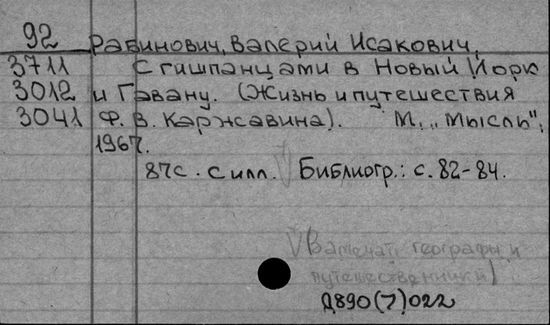 92 Рабинович, Валерий Исакович.
3711 С гишпанцами в Новый Йорк
3012 и Гавану. (Жизнь и путешествия
3041 Ф. В. Каржавина). М., "Мысль",
1967.
87с. с илл. Библиогр.: с. 82-84.
(Замечат. географы и
путешественники)
Д890(7)022